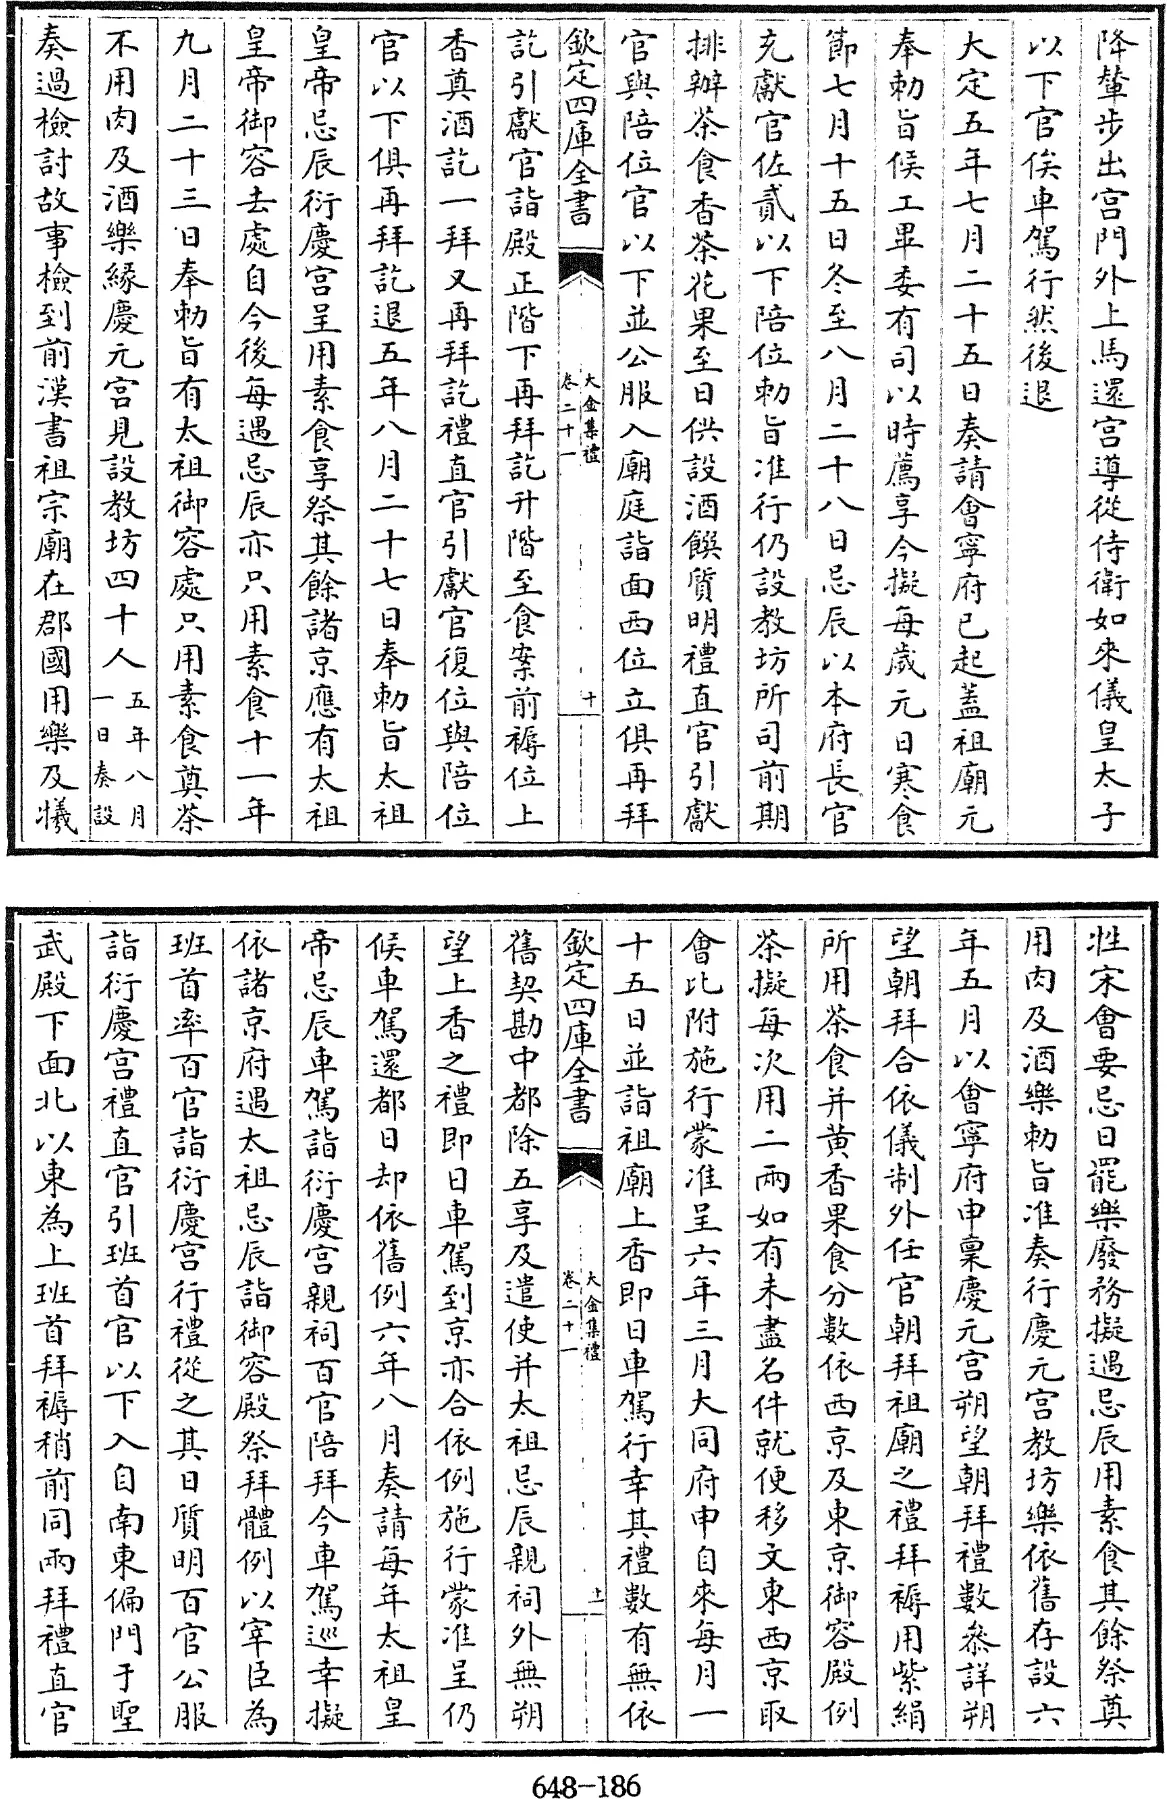 降輦步出宫門外上馬還宮導從侍衛如來儀皇太子
以下官俟車駕行然後退
大定五年七月二十五日奏請會寧府已起蓋祖廟元
奉勅旨候工畢委有司以時薦享今擬每歲元日寒食
節七月十五日冬至八月二十八日忌辰以本府長官
充獻官佐貳以下陪位勅旨准行仍設教坊所司前期
排辦茶食香茶花果至日供設酒饌質明禮直官引獻
官與陪位官以下並公服入廟庭詣面西位立俱再拜
欽定四庫全書
大金集禮
卷二十一
十
訖引獻官詣殿正階下再拜訖升階至食案前褥位上
香奠酒訖一拜又再拜訖禮直官引獻官復位與陪位
官以下俱再拜訖退五年八月二十七日奉勅旨太祖
皇帝忌辰衍慶宮呈用素食享祭其餘諸京應有太祖
皇帝御容去處自今後每遇忌辰亦只用素食十一年
九月二十三日奉勅旨有太祖御容處只用素食奠茶
不用肉及酒樂緣慶元宮見設教坊四十人五年八月
一日奏設
奏過檢討故事檢到前漢書祖宗廟在郡國用樂及犧
牲宋會要忌日罷樂廢務擬遇忌辰用素食其餘祭奠
用肉及酒樂勅旨准奏行慶元宮教坊樂依舊存設六
年五月以會寧府申稟慶元宮朔望朝拜禮數叅詳朔
望朝拜合依儀制外任官朝拜祖廟之禮拜褥用紫絹
所用茶食并黄香果食分數依西京及東京御容殿例
茶擬每次用二兩如有未盡名件就便移文東西京取
會比附施行蒙准呈六年三月大同府申自來每月一
十五日並詣祖廟上香即日車駕行幸其禮數有無依
欽定四庫全書
大金集禮
卷二十一
十一
舊契勘中都除五享及遣使并太祖忌辰親祠外無朔
望上香之禮即日車駕到京亦合依例施行蒙准呈仍
候車駕還都日却依舊例六年八月奏請每年太祖皇
帝忌辰車駕詣衍慶宮親祠百官陪拜今車駕巡幸擬
依諸京府遇太祖忌辰詣御容殿祭拜體例以宰臣為
班首率百官詣衍慶宮行禮從之其日質明百官公服
詣衍慶宮禮直官引班首官以下入自南東偏門于聖
武殿下面北以東為上班首拜褥稍前同兩拜禮直官
648-186